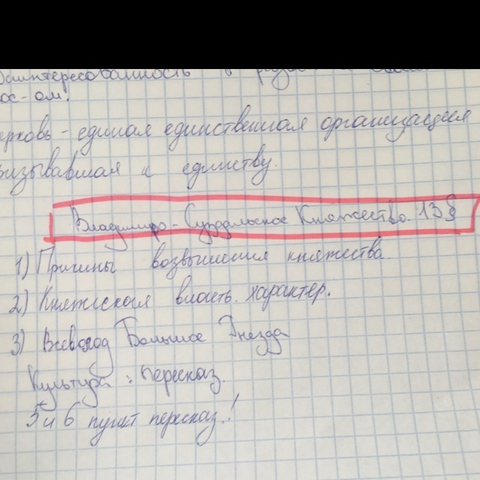 Заинтересованность в
ос-ом.
ерковь - единая единственная организация
ризывавшая к единству.
Владимиро-Суздальское Княжество. 13§
1) Причины возвышения княжества.
2) Княжеская власть. характер.
3) Всеволод Большое Гнезда
Культура: пересказ.
5 и 6 пункт пересказ!